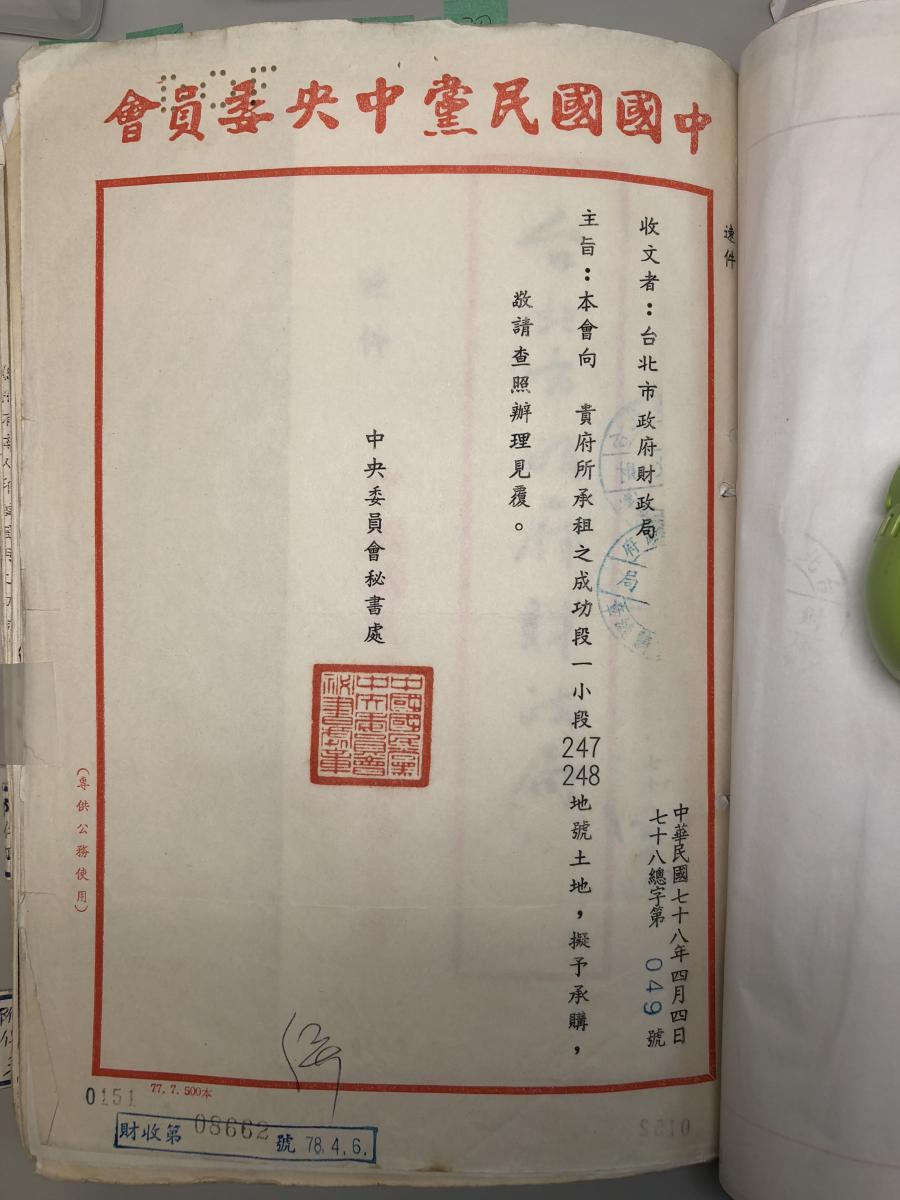 中國國民黨中央委員會
速件
收文者：台北市政府財政局
中華民國七十八年四月四日
七十八總字第 049 號
主旨：本會向 貴府所承租之成功段一小段247 248地號土地，擬予承購，
敬請查照辦理見覆。
中央委員會秘書處
中國國民黨
中央委員會
秘書處章
（專供公務使用）
77.7.500本
0151
財收第 08662 號 78.4.6.
0152